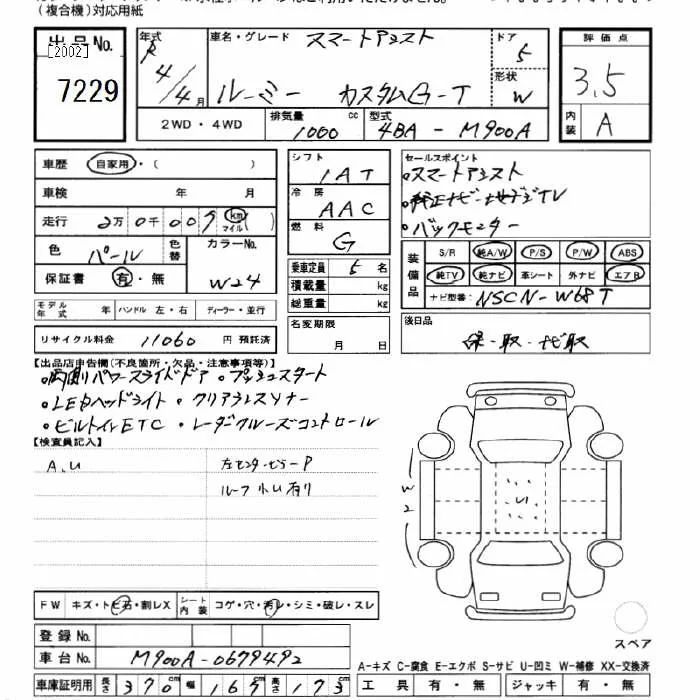 (複合機)対応用紙
出品No.
[2002]
7229
年式 R 4/4月
車名・グレード スマートアシスト
ルーミー カスタムG-T
ドア 5
形状 W
評価点
3.5
内装 A
2WD・4WD
排気量 1000 cc
型式 4BA-M900A
車歴 自家用・( )
車検 年 月
走行 2万0千009 km マイル
色 パール 色替 カラーNo. W24
保証書 有・無
モデル年式 年 ハンドル 左・右 ディーラー・並行
リサイクル料金 11060 円 預託済
シフト 1AT
冷房 AAC
燃料 G
乗車定員 5 名
積載量 kg
総重量 kg
名変期限
月 日
セールスポイント
・スマートアシスト
・純正ナビ・地デジTV
・バックモニター
装備品
S/R 純A/W P/S P/W ABS
純TV 純ナビ 革シート 外ナビ エアB
ナビ型番: NSCN-W68T
後日品
保・取・ナビ取
【出品店申告欄(不良箇所・欠品・注意事項等)】
・両側パワースライドドア ・プッシュスタート
・LEDヘッドライト ・クリアランスソナー
・ビルトインETC ・レーダークルーズコントロール
【検査員記入】
A、U
左センターピラーP
ルーフ小U有り
W2
U
FW キズ・トビ石・割レX シート内装 コゲ・穴・汚レ・シミ・破レ・スレ
登録No.
車台No. M900A-0679492
車庫証明用 長さ 370cm 幅 167cm 高さ 173cm
スペア
A-キズ C-腐食 E-エクボ S-サビ U-凹ミ W-補修 XX-交換済
工具 有・無 ジャッキ 有・無